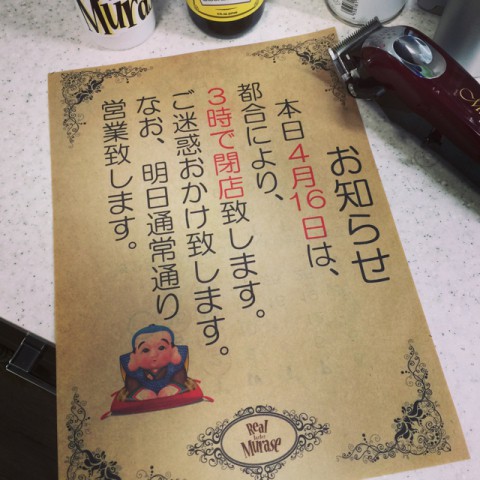 お知らせ
本日4月16日は、
都合により、
3時で閉店致します。
ご迷惑おかけ致します。
なお、明日通常通り
営業致します。
Real
Murase
Murase